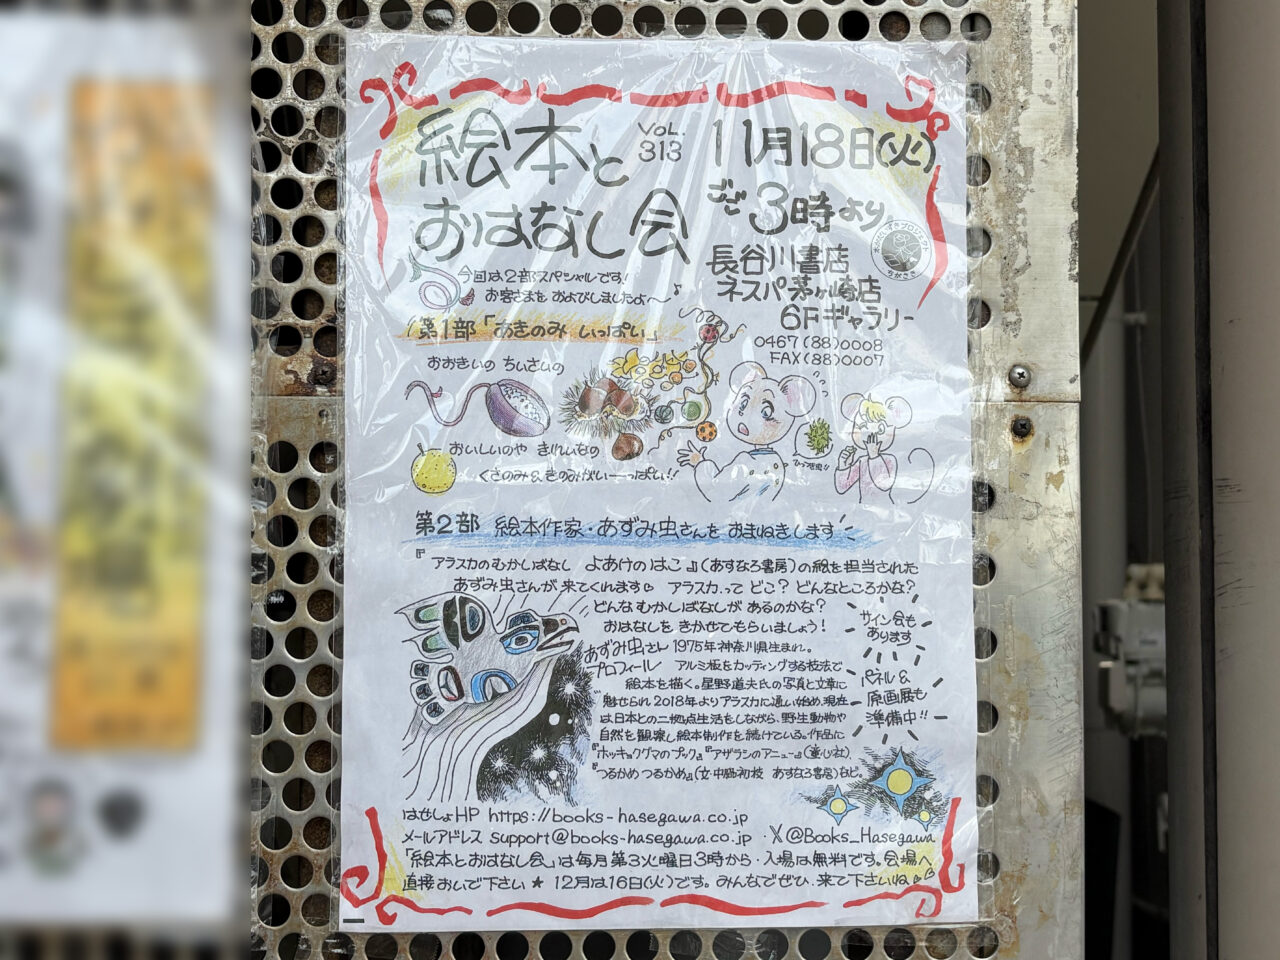 絵本と
おはなし会
VOL.
313
11月18日(火)
ごご3時より
長谷川書店
ネスパ茅ヶ崎店
6Fギャラリー
0467(88)0008
FAX(88)0007
今回は2部スペシャルです!
お客さまをおよびしましたよ〜♪
第1部「あきのみ いっぱい」
おおきいの ちいさいの
おいしいのや きれいなの
くさのみ&きのみがいーーっぱい!!
第2部 絵本作家・あずみ虫さんを おまねきします
『アラスカのむかしばなし よあけのはこ』(あすなろ書房)の絵を担当された
あずみ虫さんが来てくれます アラスカって どこ? どんなところかな?
どんなむかしばなしが あるのかな?
おはなしを きかせてもらいましょう!
サイン会も
あります
パネル&
原画展も
準備中!!
あずみ虫さん 1975年神奈川県生まれ。
プロフィール アルミ板をカッティングする技法で
絵本を描く。星野道夫氏の写真と文章に
魅せられ2018年よりアラスカに通い始め、現在
は日本との二拠点生活をしながら、野生動物や
自然を観察し絵本制作を続けている。作品に
『ホッキョクグマのプック』『アザラシのアニュー』(童心社)、
『つるかめ つるかめ』(文・中脇初枝 あすなろ書房)など。
はせしょHP https://books-hasegawa.co.jp
メールアドレス support@books-hasegawa.co.jp ・X@Books_Hasegawa
「絵本とおはなし会」は毎月第3火曜日3時から・入場は無料です。会場へ
直接おいで下さい★ 12月は16日(火)です。みんなでぜひ、来て下さいね